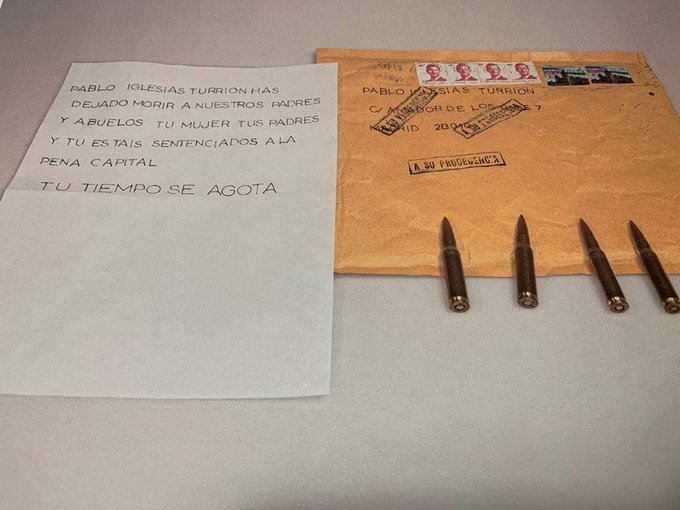 PABLO IGLESIAS TURRION HAS
DEJADO MORIR A NUESTROS PADRES
Y ABUELOS TU MUJER TUS PADRES
Y TU ESTAIS SENTENCIADOS A LA
PENA CAPITAL
TU TIEMPO SE AGOTA
PABLO IGLESIAS TURRIÓN
C/ DE LOS 7
MADRID
A SU PROCEDENCIA
A SU PROCEDENCIA